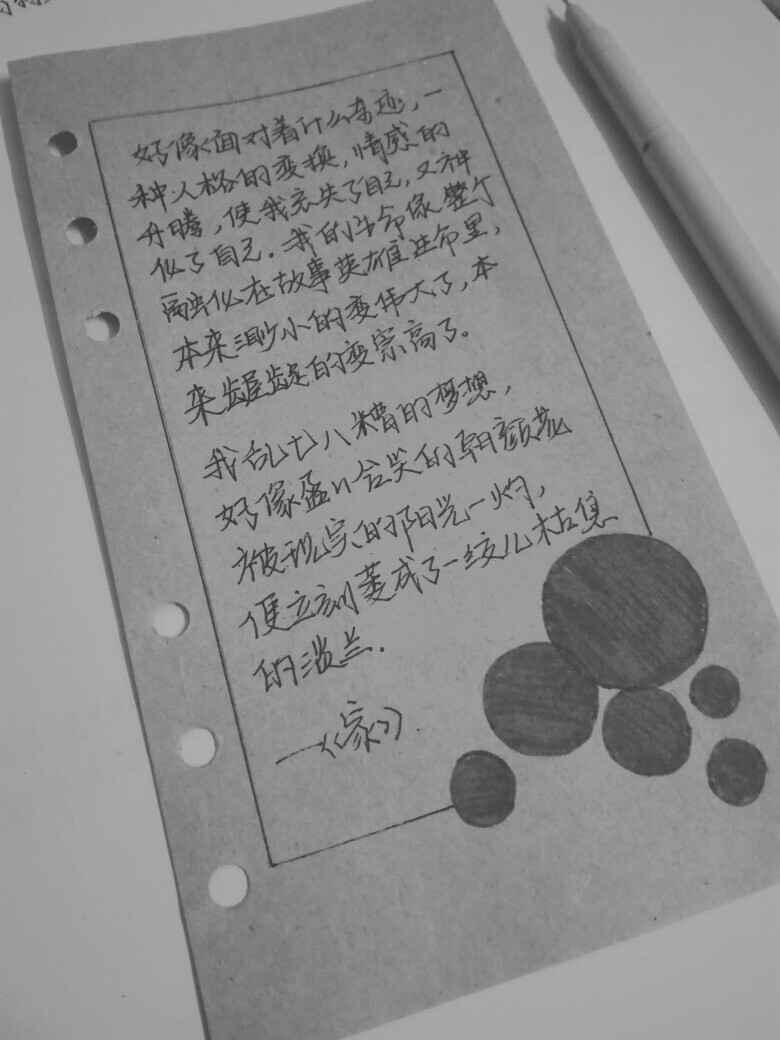 好像面对着什么奇迹，一
种人格的变换，情感的
升腾，使我丢失了自己，又神
似了自己。我的生命像整个
融化在故事英雄生命里，
本来渺小的变伟大了，本
来龌龊的变崇高了。
我乱七八糟的梦想，
好像盈盈含笑的朝颜花
被现实的阳光一灼，
便立刻萎成了一绞儿枯焦
的淡兰.
—《家》.